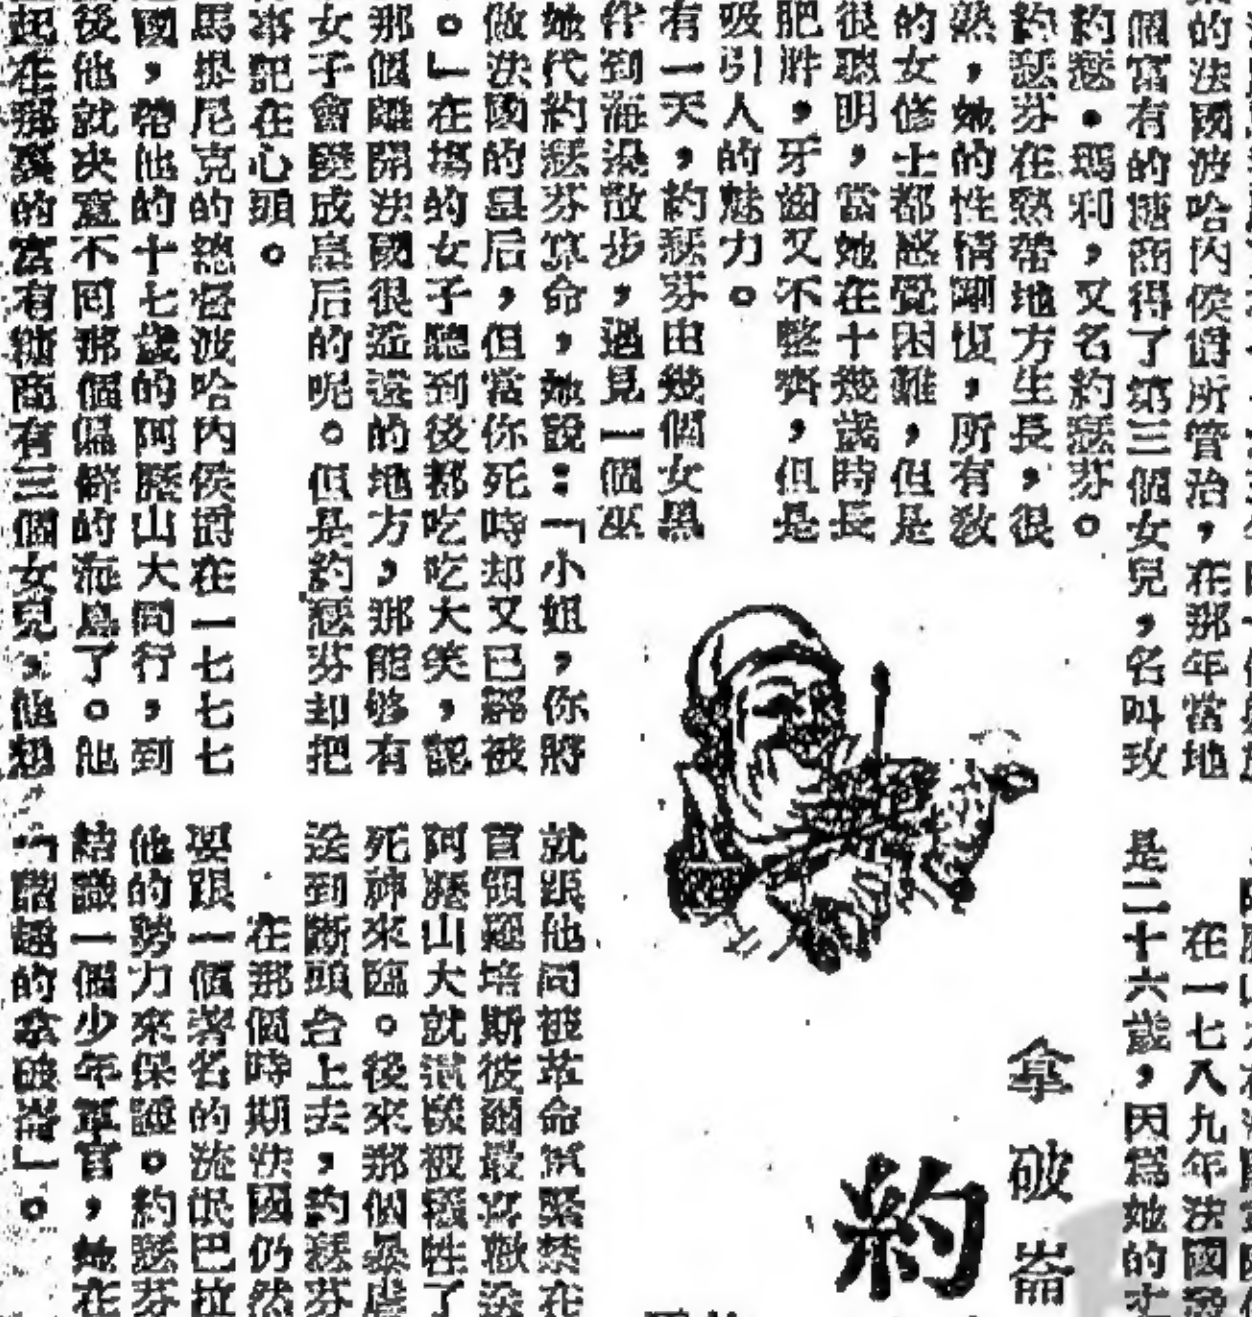 的法國波哈內侯爵所管治，在那年當地
個富有的糖商得了第三個女兒，名叫玫
約瑟．瑪利，又名約瑟芬。
約瑟芬在熱帶地方生長，很
熟，她的性情剛愎，所有教
的女修士都感覺困難，但是
很聰明，當她在十幾歲時長
肥胖，牙齒又不整齊，但是
吸引人的魅力。
有一天，約瑟芬由幾個女黑
伴到海邊散步，遇見一個巫
她代約瑟芬算命，她說：「小姐，你將
做法國的皇后，但當你死時却又已經被
。」在塲的女子聽到後都吃吃大笑，認
那個離開法國很遙遠的地方，那能够有
女子會變成皇后的呢。但是約瑟芬却把
事記在心頭。
馬提尼克的總督波哈內侯爵在一七七七
國，帶他的十七歲的阿歷山大同行，到
後他就决意不回那個偏僻的海島了。他
起在那裏的富有糖商有三個女兒，他想
在一七八九年法國發
是二十六歲，因爲她的丈
拿破崙
約
就跟他同被革命黨緊禁在
官但羅培斯彼爾最喜歡送
阿歷山大就這樣被犧牲了
死神來臨。後來那個暴虐
送到斷頭台上去，約瑟芬
在那個時期法國仍然
要跟一個著名的流氓巴拉
他的勢力來保護。約瑟芬
結識一個少年軍官，她在
的拿破崙」。